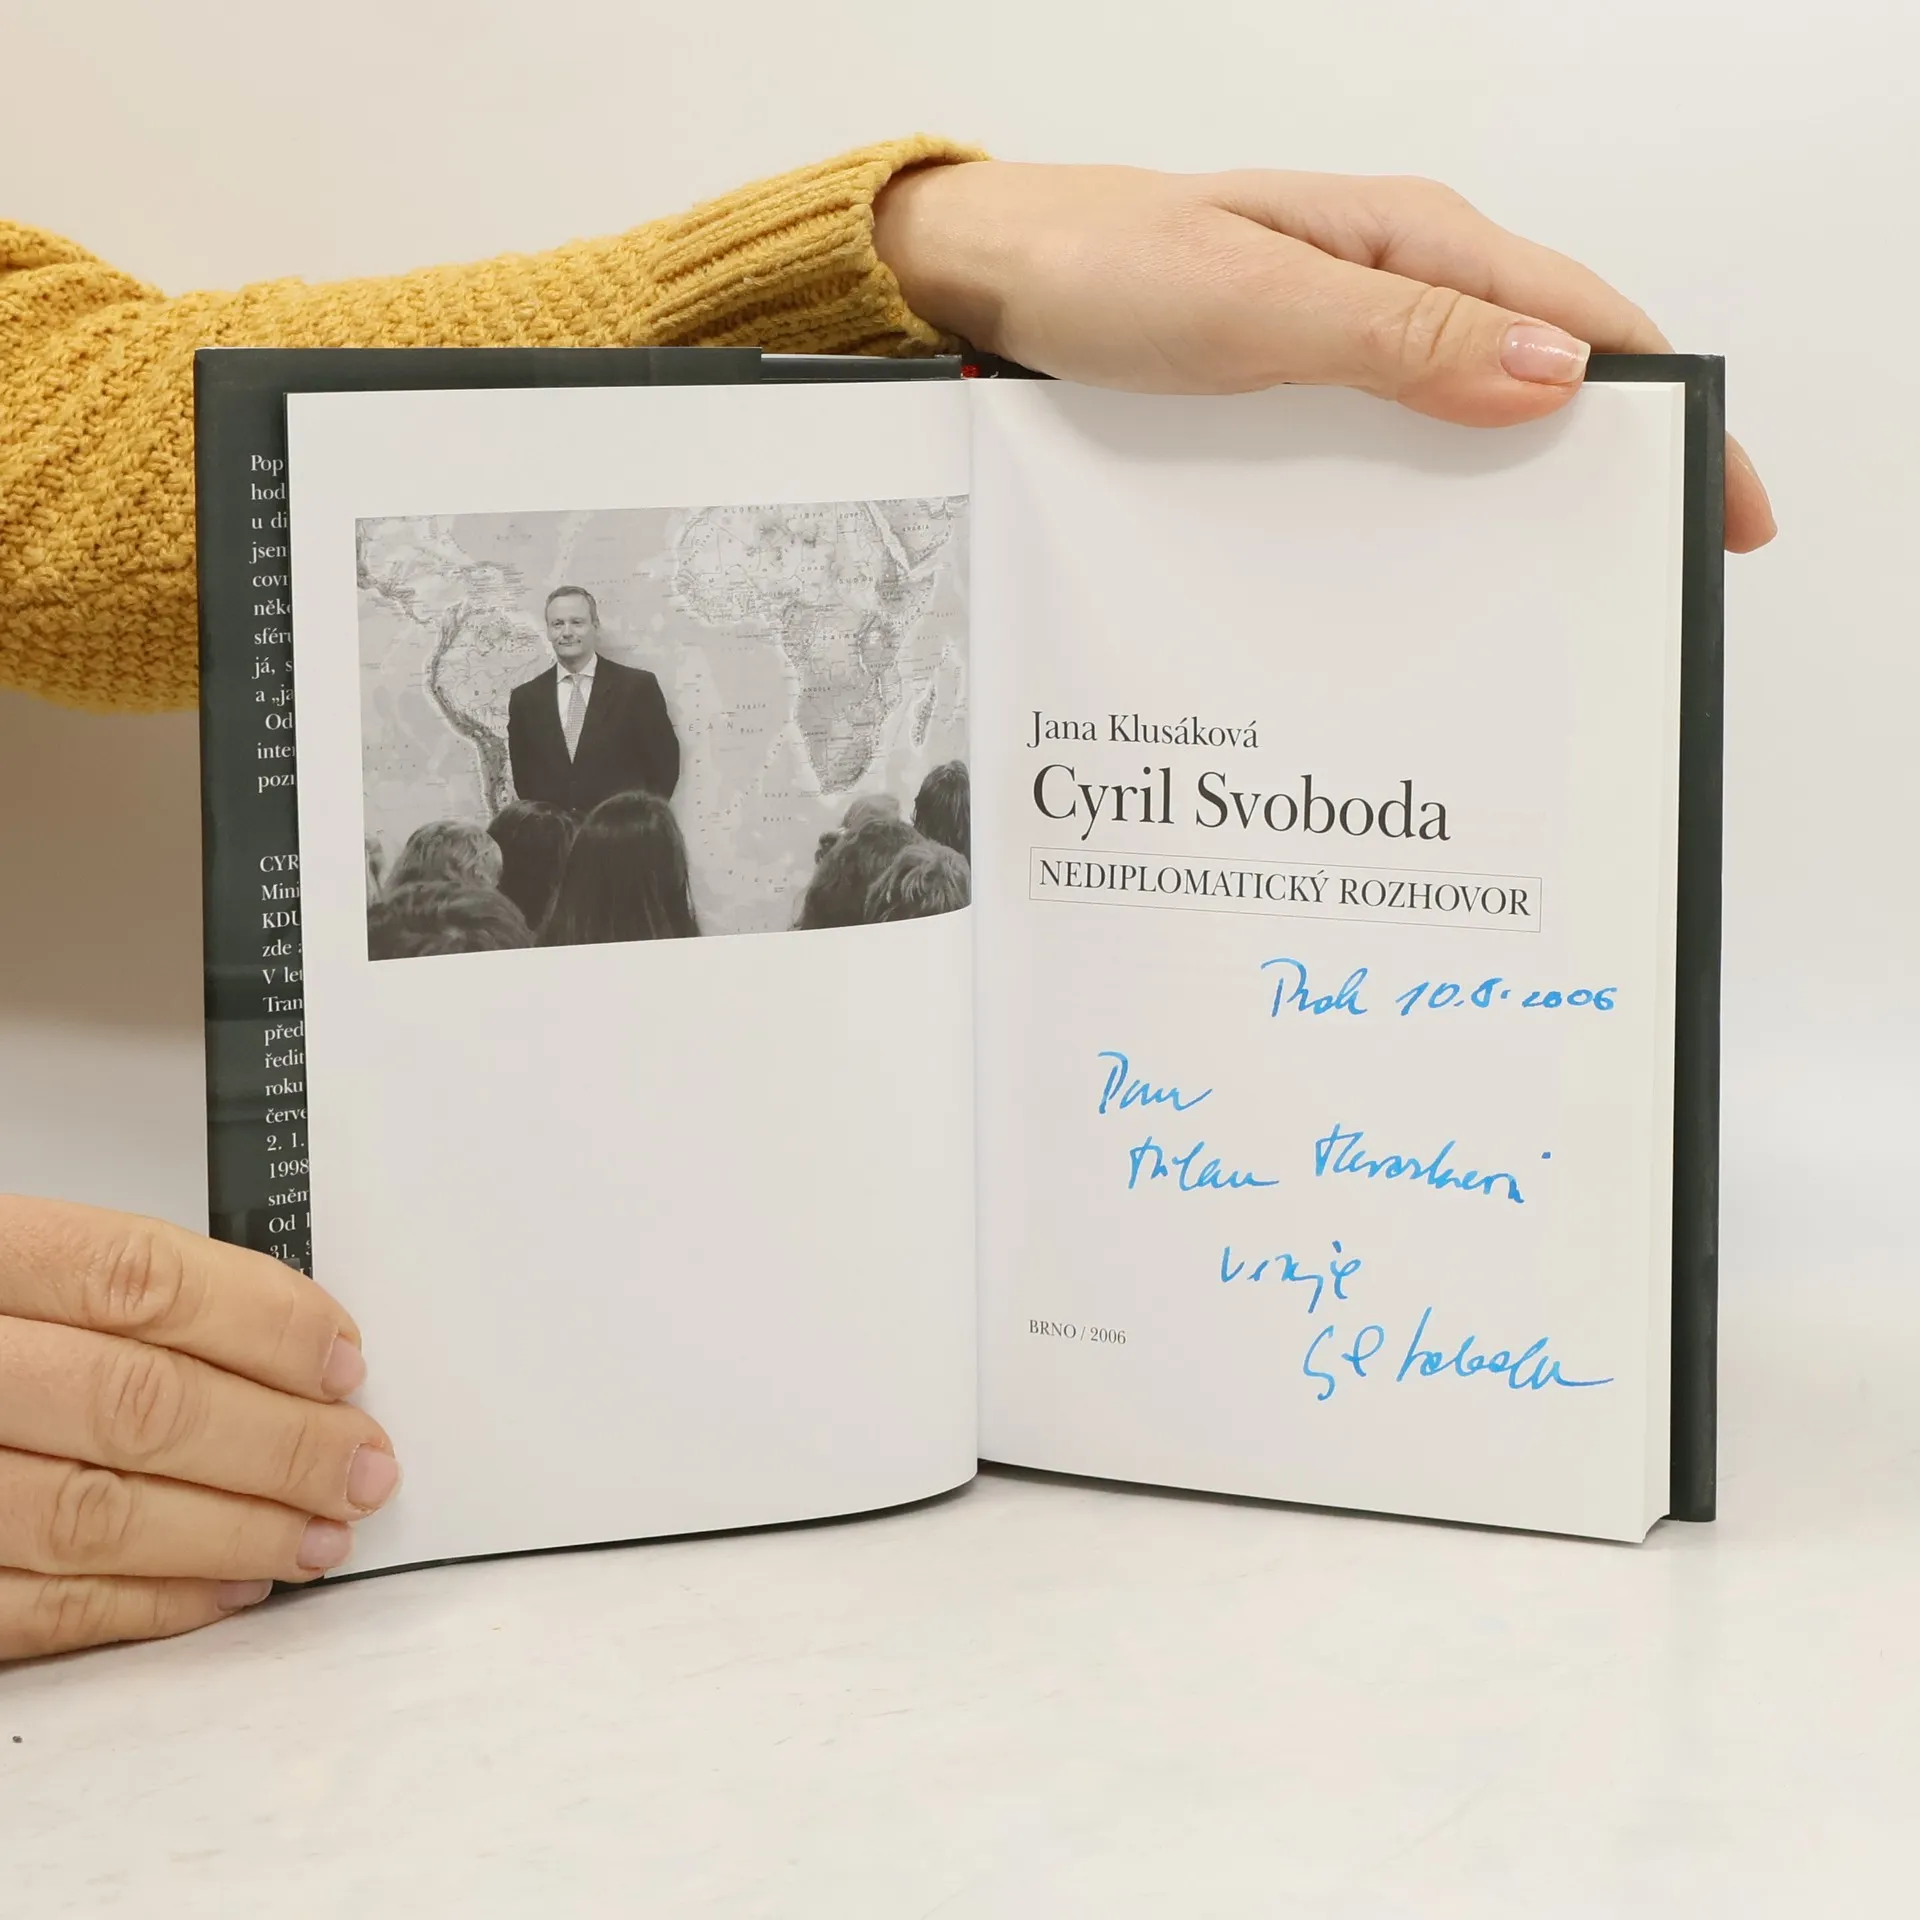 Pop
hod
u di
jsen
covn
něko
sféru
já, s
a „ja
Od
inter
pozn
CYR
Mini
KDU
zde a
V let
Tran
před
ředit
roku
červe
2. 1.
1998
sněm
Od
31.
Jana Klusáková
Cyril Svoboda
NEDIPLOMATICKÝ ROZHOVOR
10.8.2006
Panu
Milanu
věnuje
Cyril Svoboda
BRNO / 2006